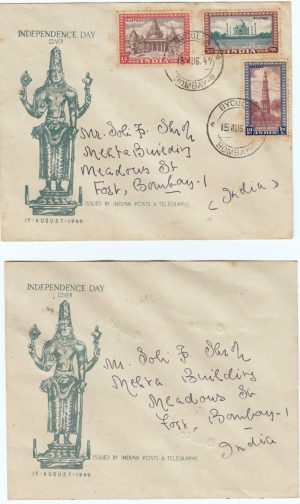 INDEPENDENCE DAY
COVER
POSTAGE
POSTAGE
INDIA
INDIA
BYCULLA
15 AUG. 49
BOMBAY-8
INDIA
BYCUL
15 AUG
BOMBAY-8
Mr. Soli
Mehta Building
Meadows St
Fort, Bombay-1
(India)
ISSUED BY INDIAN POSTS & TELEGRAPHS
15-AUGUST-1949
INDEPENDENCE DAY
COVER
Mr. Soli
Mehta Building
Meadows St
Fort, Bombay-1
India
ISSUED BY INDIAN POSTS & TELEGRAPHS
15-AUGUST-1949